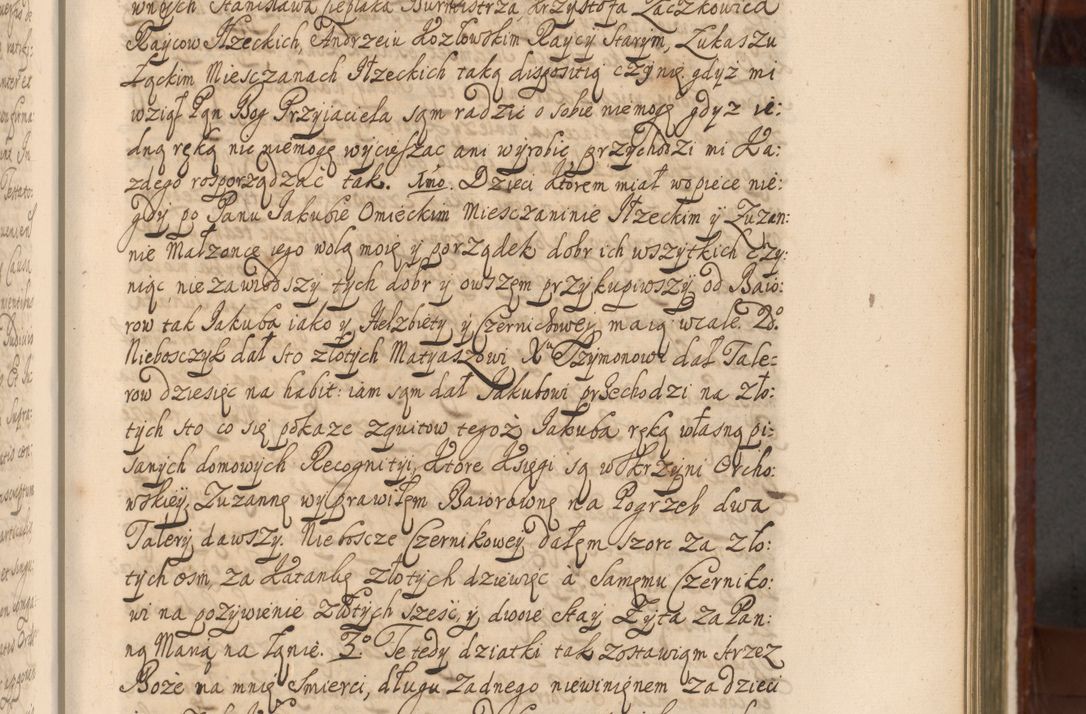 wnych Stanisława Cieplaka Burmistrza, Krzysztofa Zaczkowica
Raycow Iłzeckich, Andrzeiu Kozłowskim Raycy Starym, Łukaszu
Łąckim Miesczanach Iłzeckich taką dispositią czynię, gdyż mi
wziął Pan Bog Przyiaciela sąm radzić o sobie niemogę gdyz ie:
dną ręką nic niemogę wyciesząc ani wyrobic przychodzi mi Ka:
zdego rosporządzać tak. 1mo. Dzieci ktorem miał wopiece nie:
gdy po Panu Iakubie Omieckim Miesczaninie Iłzeckim y Zuzan:
nie Małzonce iego wolą moię y porządek dobr ich wszytkich czy:
niąc niezawiodszy tych dobr y owszem przykupiwszy od Baio:
row tak Iakuba iako y Helzbiety y Czernichowey maią wcale. 2do
Nieboszczyk dał sto złotych Matyaszowi Xu Szymonowi dał Tale:
row dziesięc na habit: iam sąm dał Iakubowi przechodzi na zło:
tych sto co się pokaze zquitow tegoż Iakuba ręką własną pi:
sanych domowych Recognityi, ktore księgi są w skrzyni Orcho:
wskiey, Zuzannę wyprawiłem Baiorownę na Pogrzeb dwa
Talery dawszy. Nieboscze Czernikowey dałem szorc za zło:
tych osm, za katankę złotych dziewięc à Samemu Czerniko:
wi na pozywienie złotych sześć, y dwoie stay Zyta za Pan:
ną Marią na Łanie. 3o Te tedy dziatki tak zostawiam strzez
Boże na mnię Smierci, długu zadnego niewinięnem za dzieci